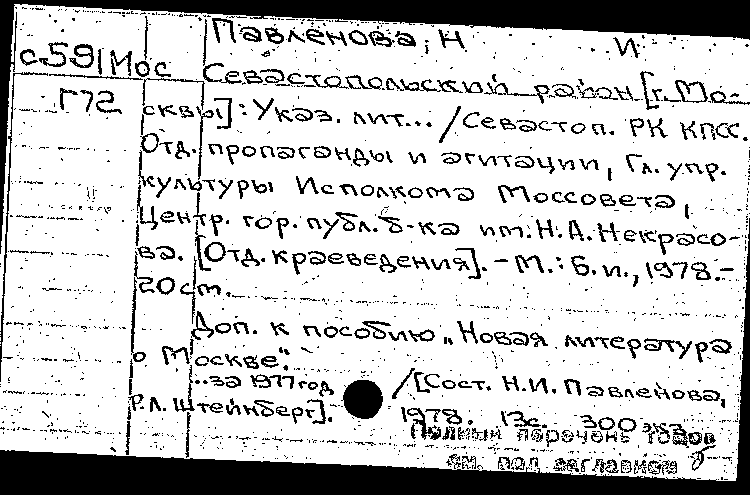 Павленова, Н И
с591Мос Севастопольский район [г. Мо-
Г72 сквы]: Указ. лит... / Севастоп. РК КПСС.
Отд. пропаганды и агитации, Гл. упр.
культуры Исполкома Моссовета,
Центр. гор. публ. б-ка им. Н. А. Некрасо-
ва. [Отд. краеведения]. - М.: Б. и., 1978. -
20 см.
Доп. к пособию „Новая литература
о Москве".
...за 1977 год /[Сост. Н.И. Павленова,
Р.Л. Штейнберг]. 1978. 13с. 300 экз
Полный перечень томов
см. под заглавием